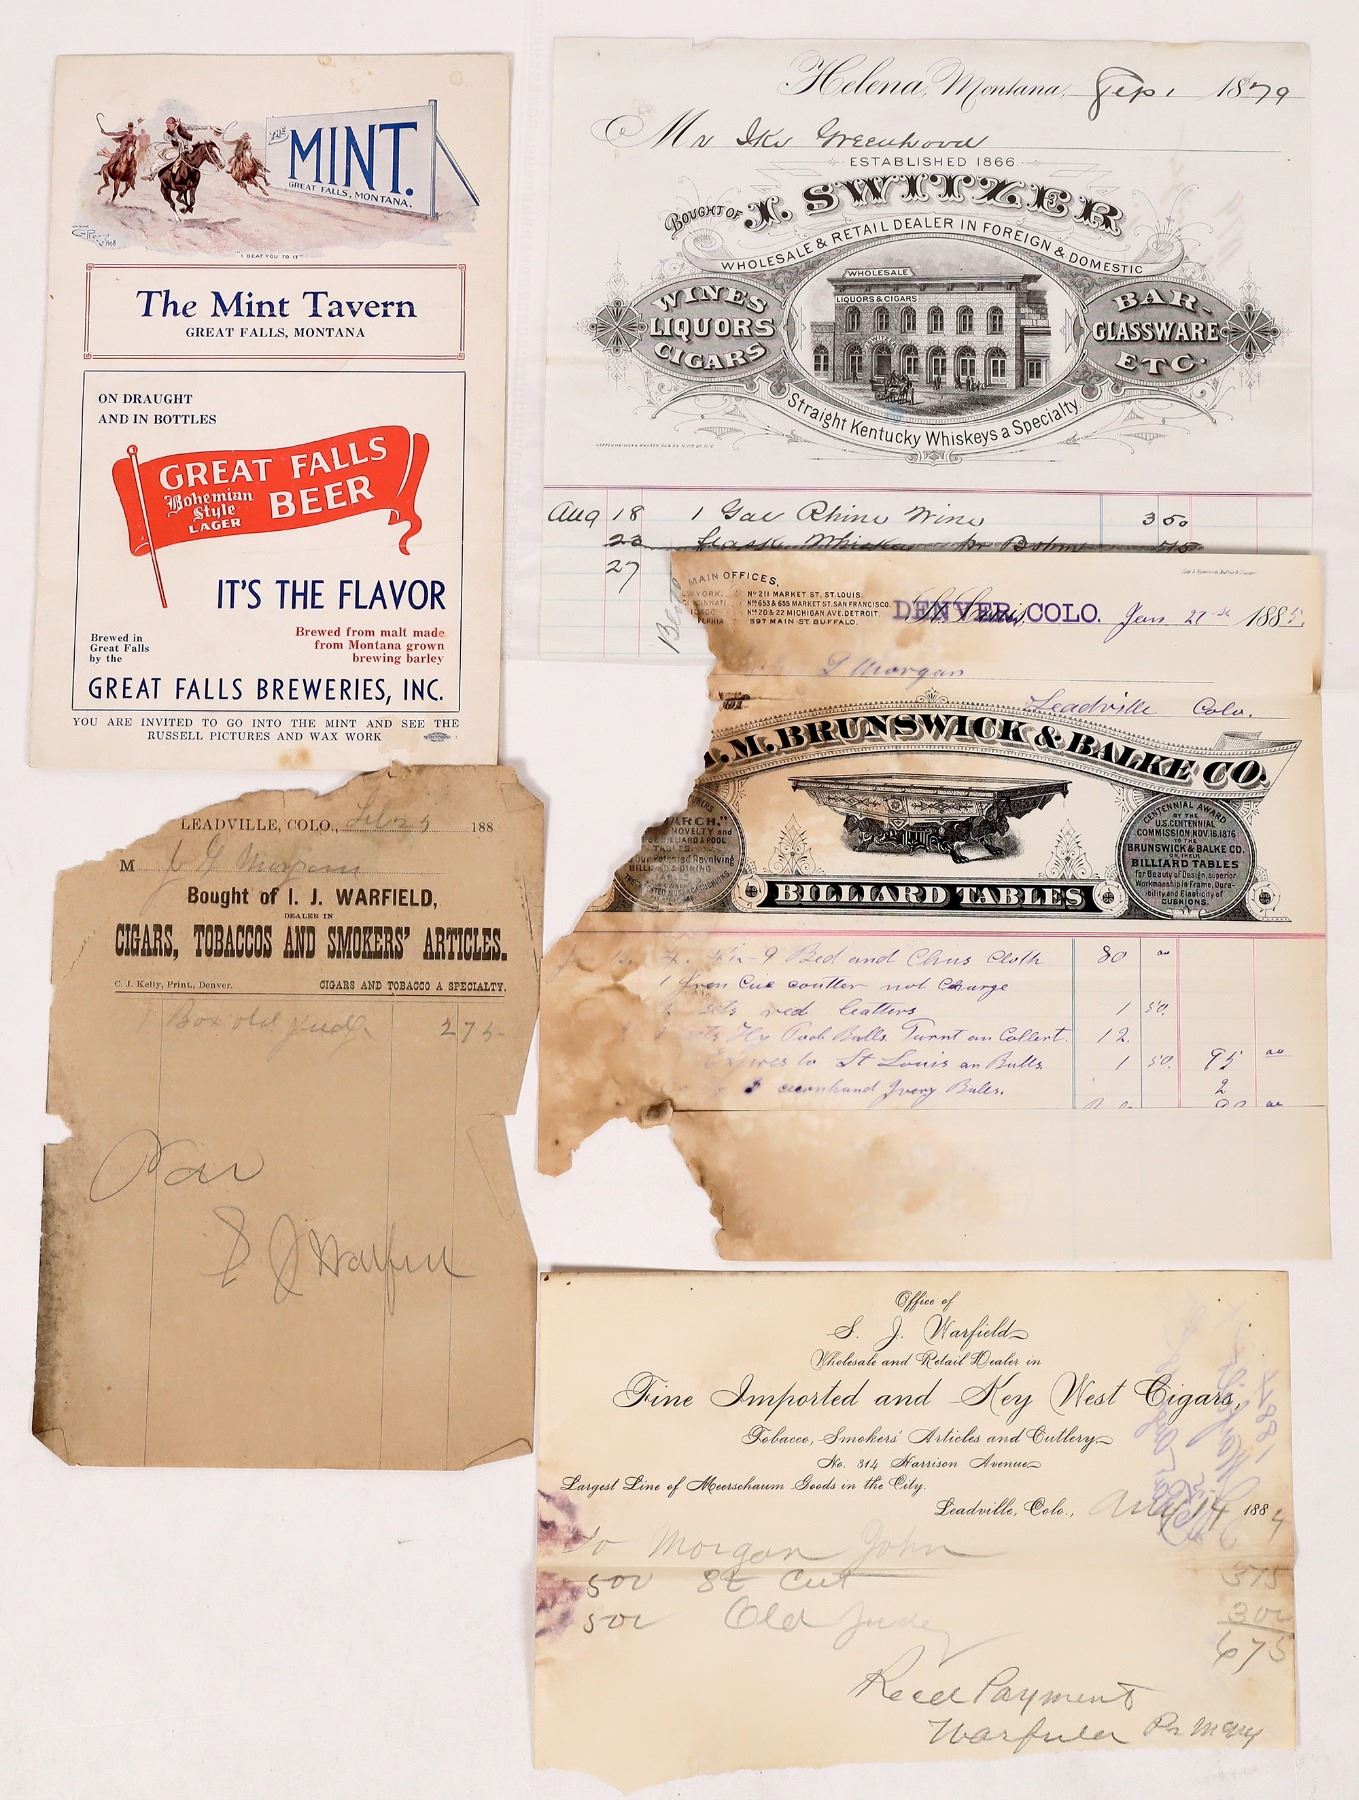 THE
MINT.
GREAT FALLS, MONTANA.
"I BEAT YOU TO IT"
The Mint Tavern
GREAT FALLS, MONTANA
ON DRAUGHT
AND IN BOTTLES
GREAT FALLS
Bohemian
Style
LAGER
BEER
IT'S THE FLAVOR
Brewed in
Great Falls
by the
Brewed from malt made
from Montana grown
brewing barley
GREAT FALLS BREWERIES, INC.
YOU ARE INVITED TO GO INTO THE MINT AND SEE THE
RUSSELL PICTURES AND WAX WORK
Helena, Montana, Sep 1 1879
Mr Ike Greenhood
ESTABLISHED 1866
BOUGHT OF I. SWITZER
WHOLESALE & RETAIL DEALER IN FOREIGN & DOMESTIC
WINES
LIQUORS
CIGARS
WHOLESALE
LIQUORS & CIGARS
BAR-
GLASSWARE
ETC.
Straight Kentucky Whiskeys a Specialty
Aug 18 1 Gal Rhine Wine 3 50
23 flask Whiskey pr Bohm
27
MAIN OFFICES,
No 211 MARKET ST. ST. LOUIS.
Nos 653 & 655 MARKET ST. SAN FRANCISCO.
Nos 20 & 22 MICHIGAN AVE. DETROIT.
597 MAIN ST. BUFFALO.
St. Louis, DENVER, COLO. Jan 27th 1885
G Morgan
Leadville Colo.
OF
J.M. BRUNSWICK & BALKE CO.
ARCH."
NOVELTY and
BILLIARD & POOL
TABLES.
Our Patented Revolving
BILLIARD & DINING
BILLIARD TABLES
CENTENNIAL AWARD
BY THE
U.S. CENTENNIAL
COMMISSION, NOV. 16. 1876
TO THE
BRUNSWICK & BALKE CO.
ON THEIR
BILLIARD TABLES
for Beauty of Design, superior
Workmanship in Frame, Dura-
bility and Elasticity of
CUSHIONS.
4. 4½-9 Bed and Chus Cloth 80 00
1 Iron Cue coutter not Charge
sets red leatters 1 50.
sets Hy Pool Balls Turnt an Collert. 12.
Expres to St Louis an Balls 1 50. 95 00
secenhand Ivery Bales. 2
LEADVILLE, COLO., Feb 25 188
M J G Morgan
Bought of I. J. WARFIELD,
DEALER IN
CIGARS, TOBACCOS AND SMOKERS' ARTICLES.
C. J. Kelly, Print., Denver. CIGARS AND TOBACCO A SPECIALTY.
1 Box old Judge 2 75
S J Warfield
Office of
S. J. Warfield
Wholesale and Retail Dealer in
Fine Imported and Key West Cigars,
Tobacco, Smokers' Articles and Cutlery
No. 314 Harrison Avenue
Largest Line of Meerschaum Goods in the City.
Leadville, Colo., Aug 14 1884
To Morgan John
500 St Cut 375
500 Old Judge 300
675
Recd Payment
Warfield Pr Mcary